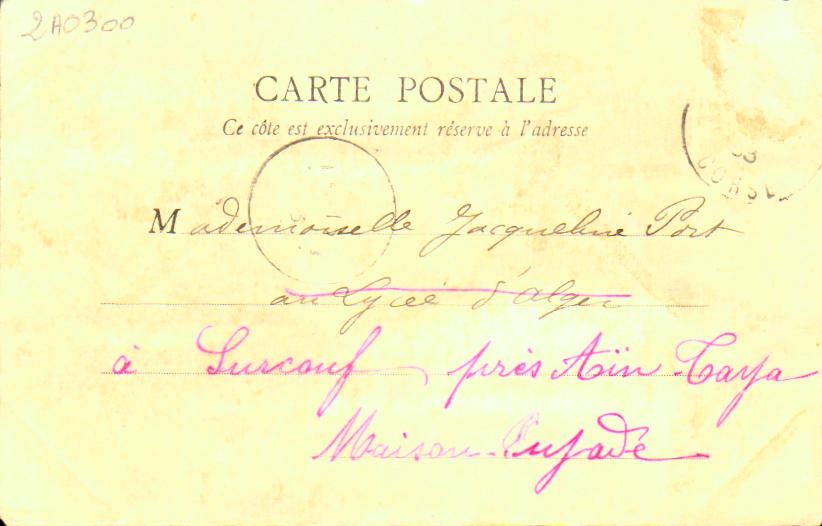 2A0300
CARTE POSTALE
Ce côte est exclusivement réserve à l'adresse
03
CORSE
Mademoiselle Jacqueline Port
au Lycée d'Alger
à Surcouf près Aïn-Taya
Maison Pujade